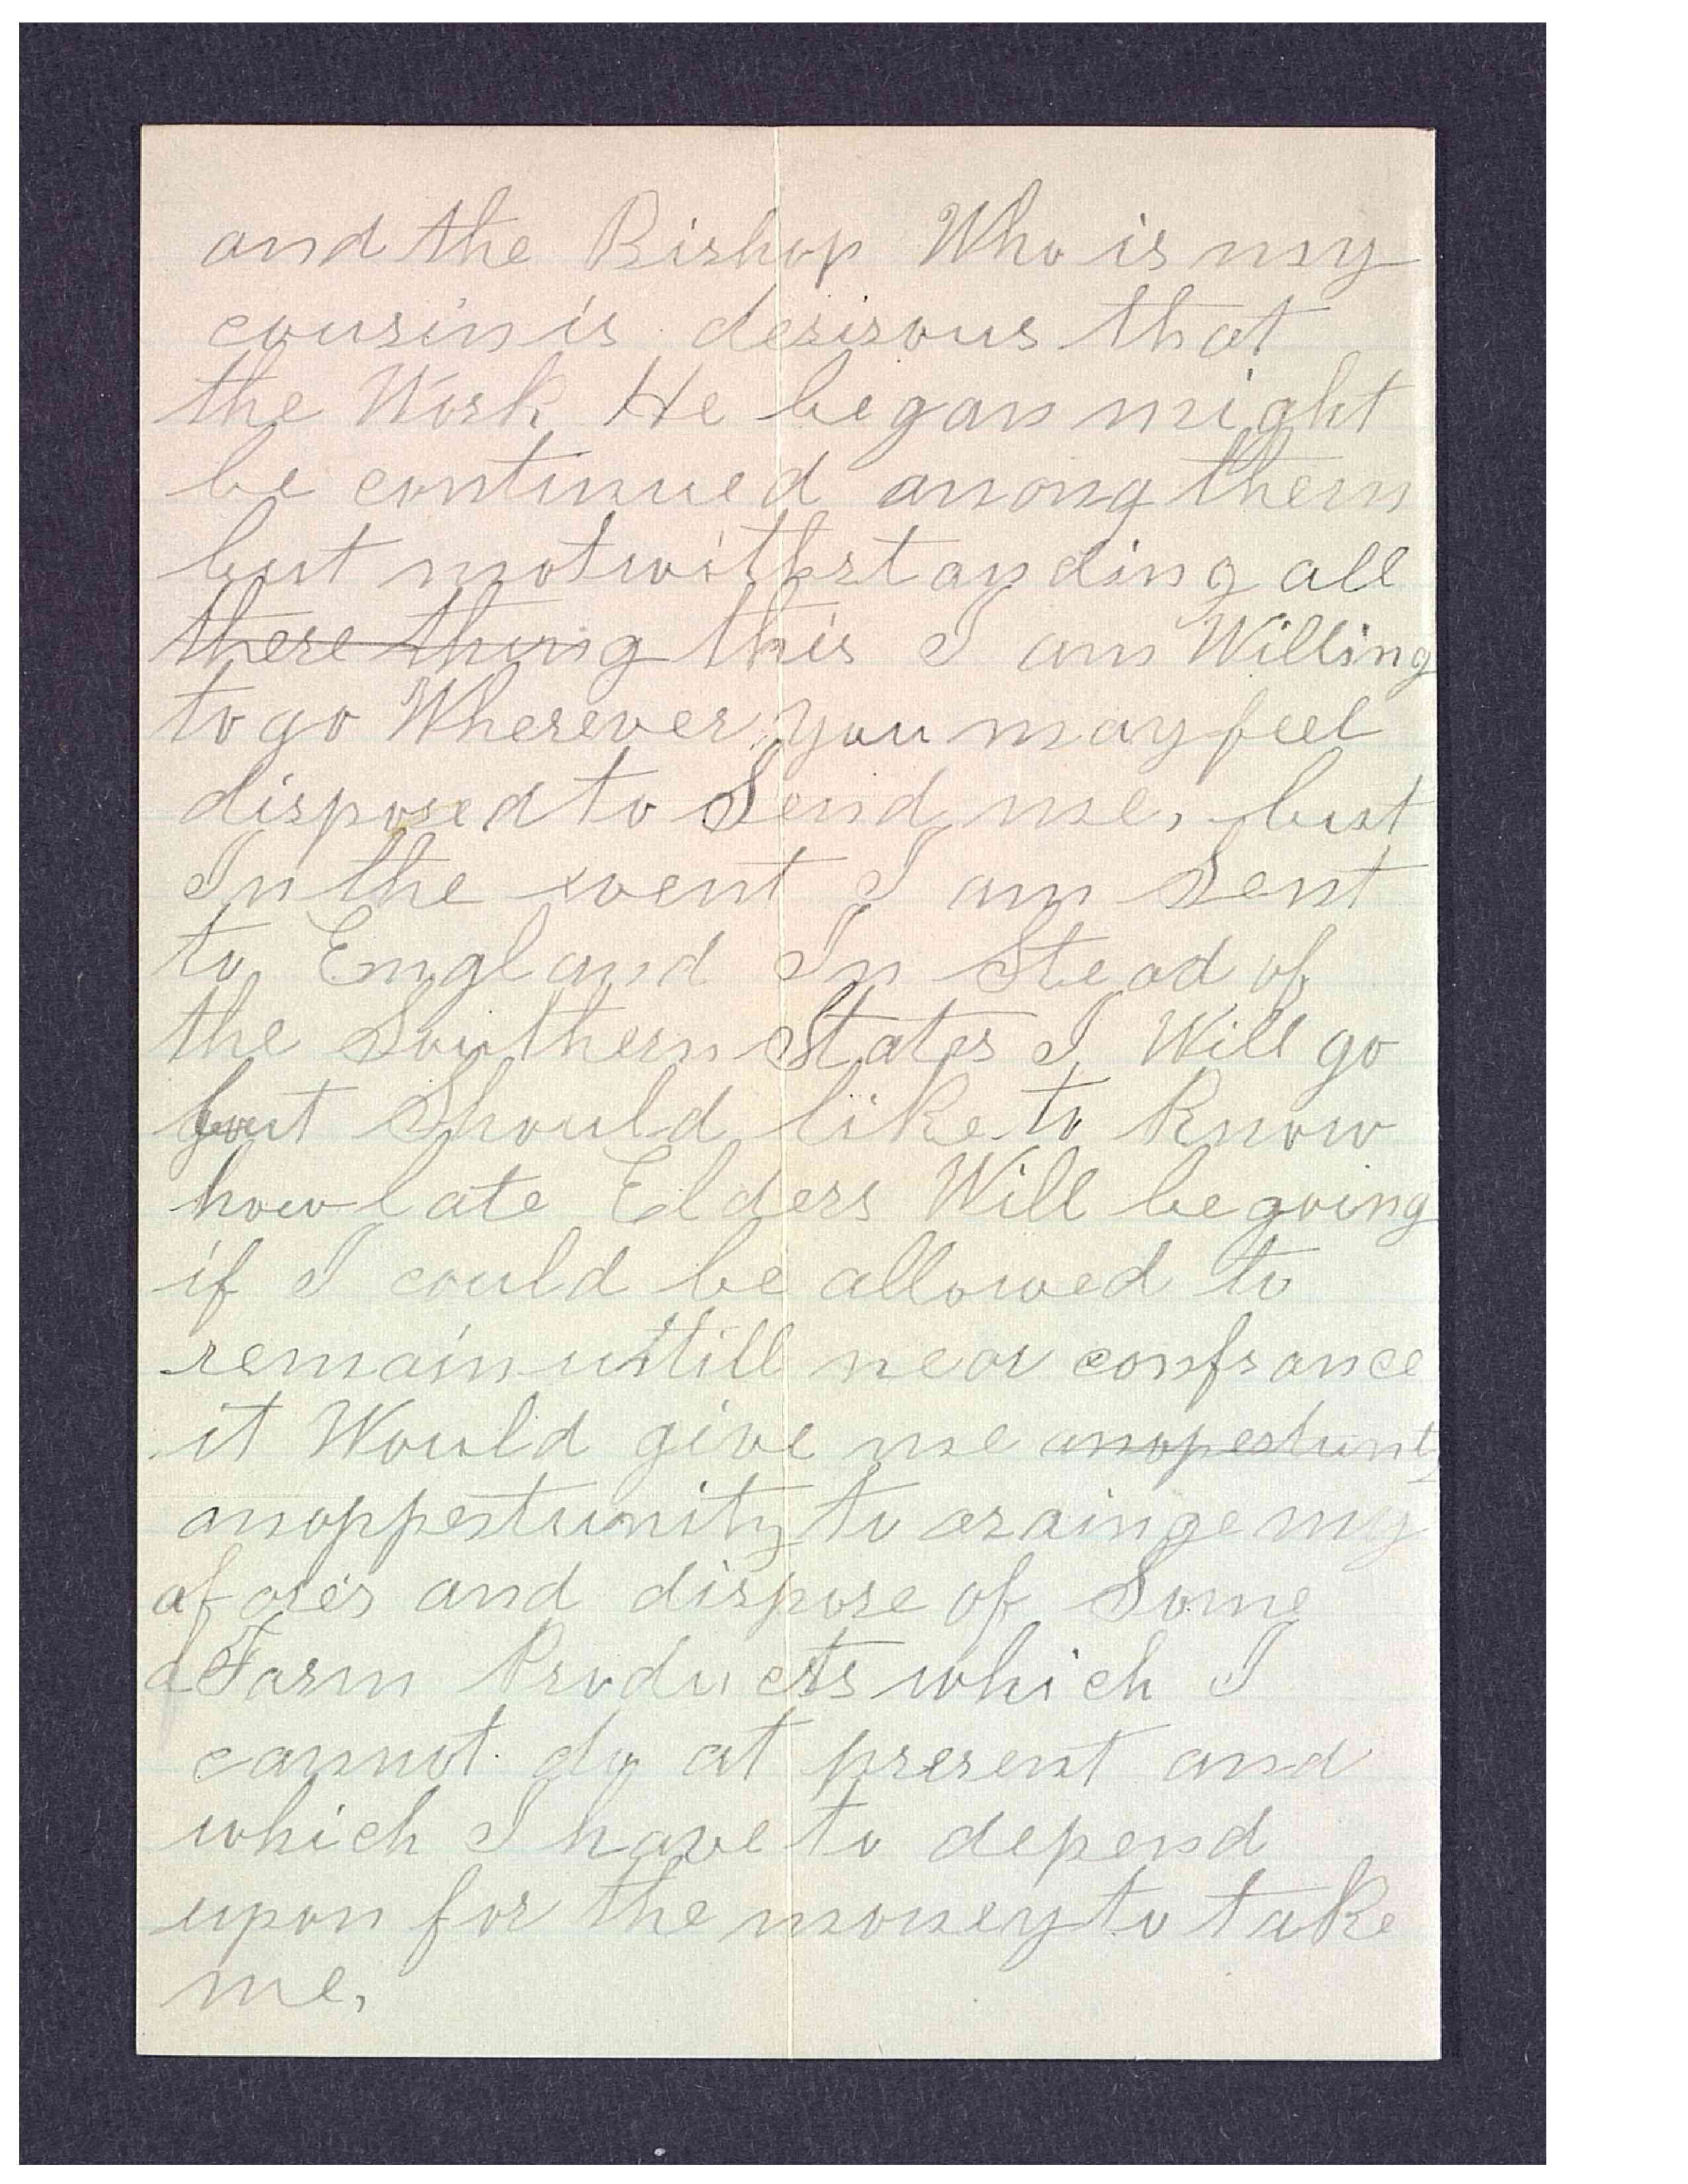 and the Bishop Who is my
cousin is desirous that
the Work He began might
be continued among them
but notwithstanding all
there thing this I am Willing
to go Wherever you may feel
disposed to Send me, but
In the event I am Sent
to England In Stead of
the Southern States I Will go
but Should like to Know
how late Elders Will be going
if I could be allowed to
remain untill near confrance
it Would give me anopertunty
anoppertunity to arainge my
afares and dispose of Some
Farm Products which I
cannot do at present and
which I have to depend
upon for the money to take
me,